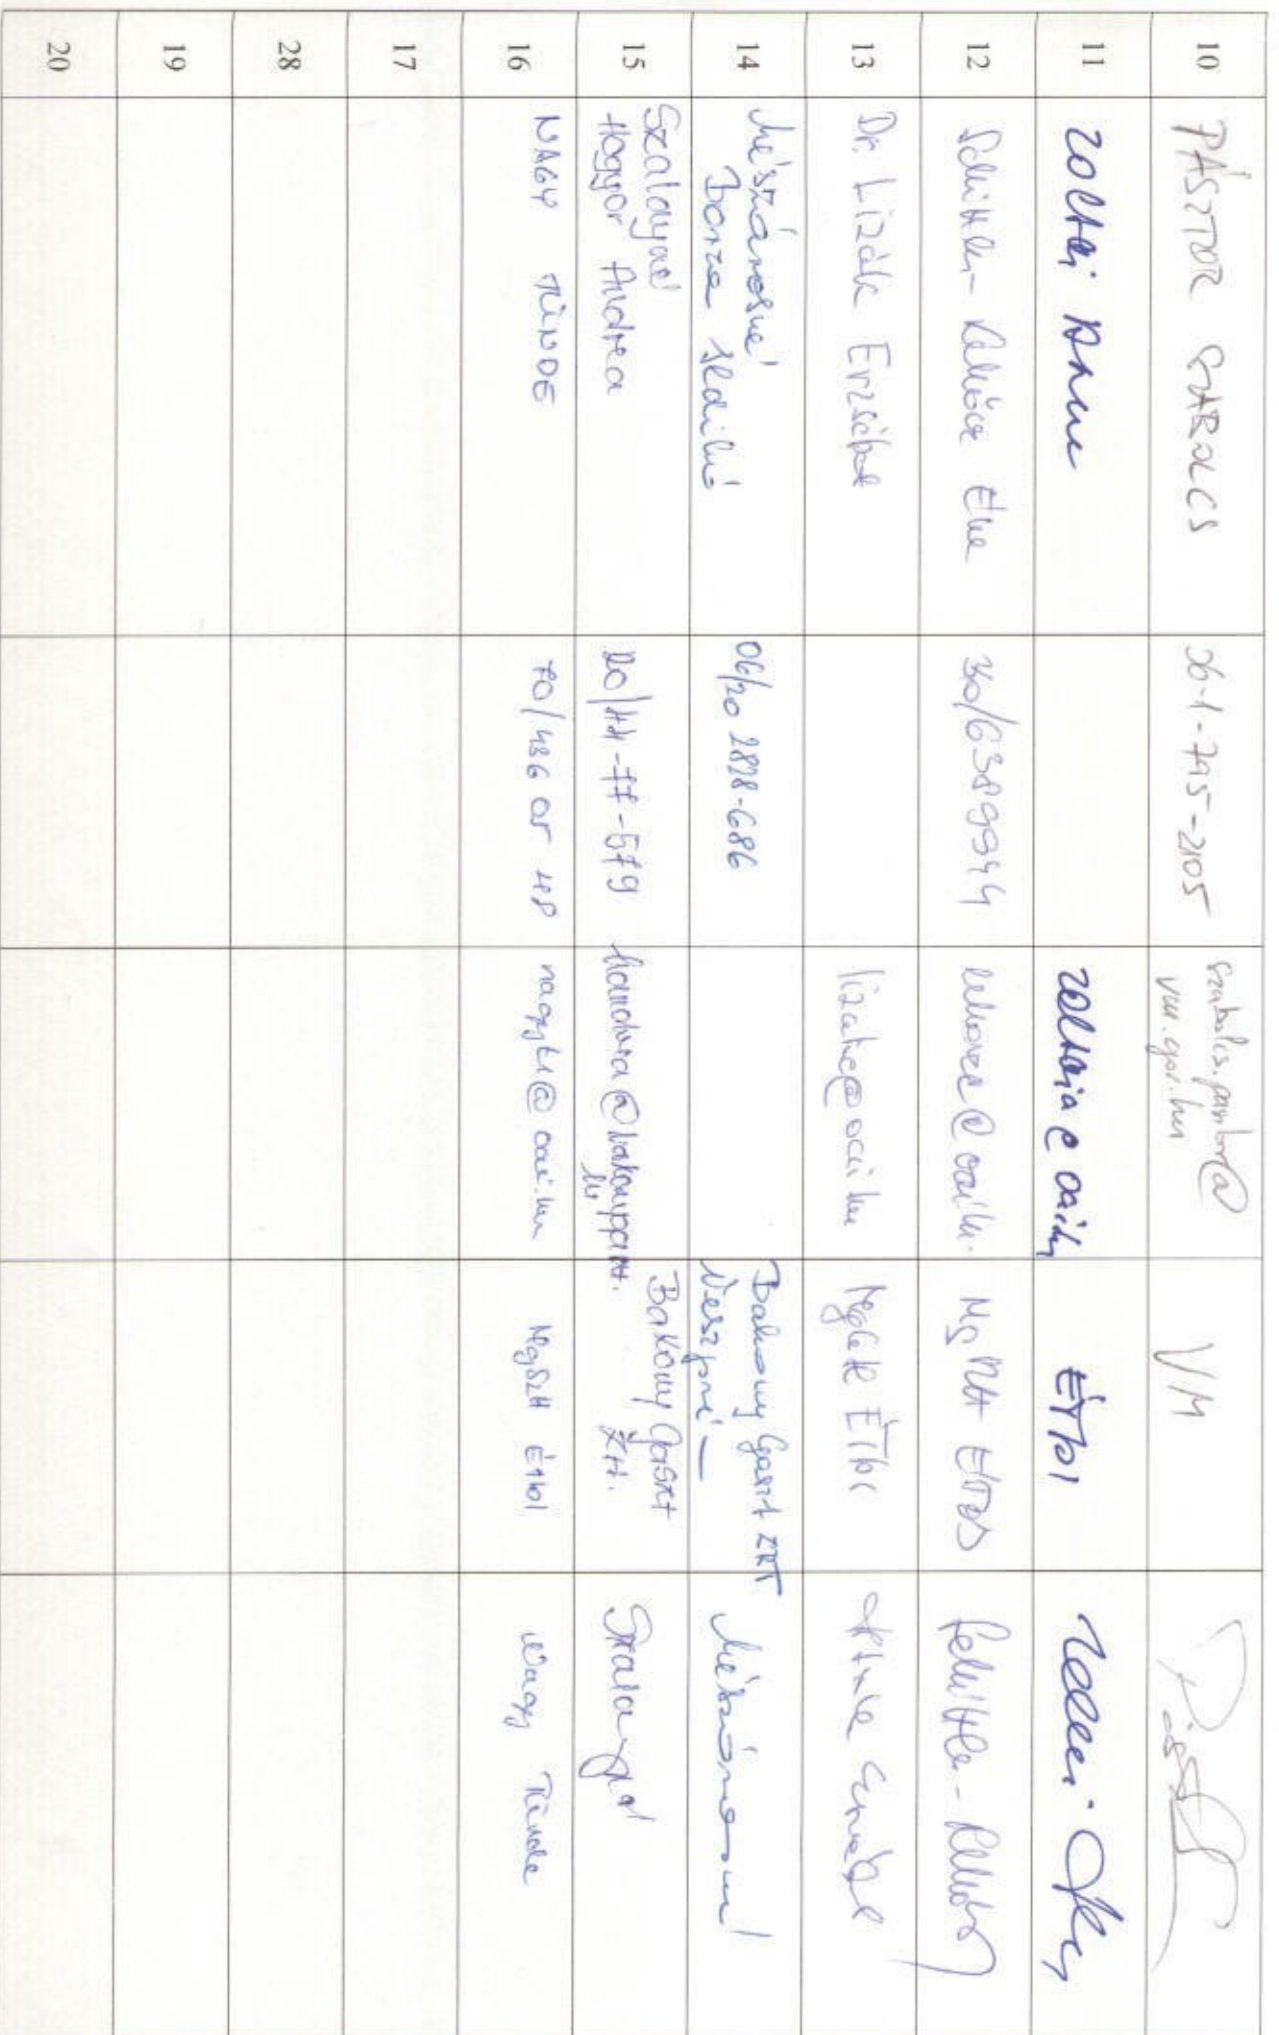 10 PÁSZTOR SZABOLCS 06-1-795-2105 szabolcs.pasztor@
vm.gov.hu VM
11 Zoltai Anna zoltaia@oai.hu ÉTbI Zoltai
12 Schittler- Eke 30/6389944 MgSZH ÉTBI
13 Dr. Lizák Erzsébet lizake@oai.hu MgSzH ÉTbI
14 Mészárosné
Borza 06/20 2828-686 Bakony Gaszt ZRT
Veszprém Mészárosné
15 Szalayné
Hogyor Andrea 20/44-77-579 Bakony Gaszt
Zrt. Szalayné
16 NAGY TÜNDE 70/436 05 48 nagyti@oai.hu MgSzH ÉTbI Nagy Tünde
17
28
19
20